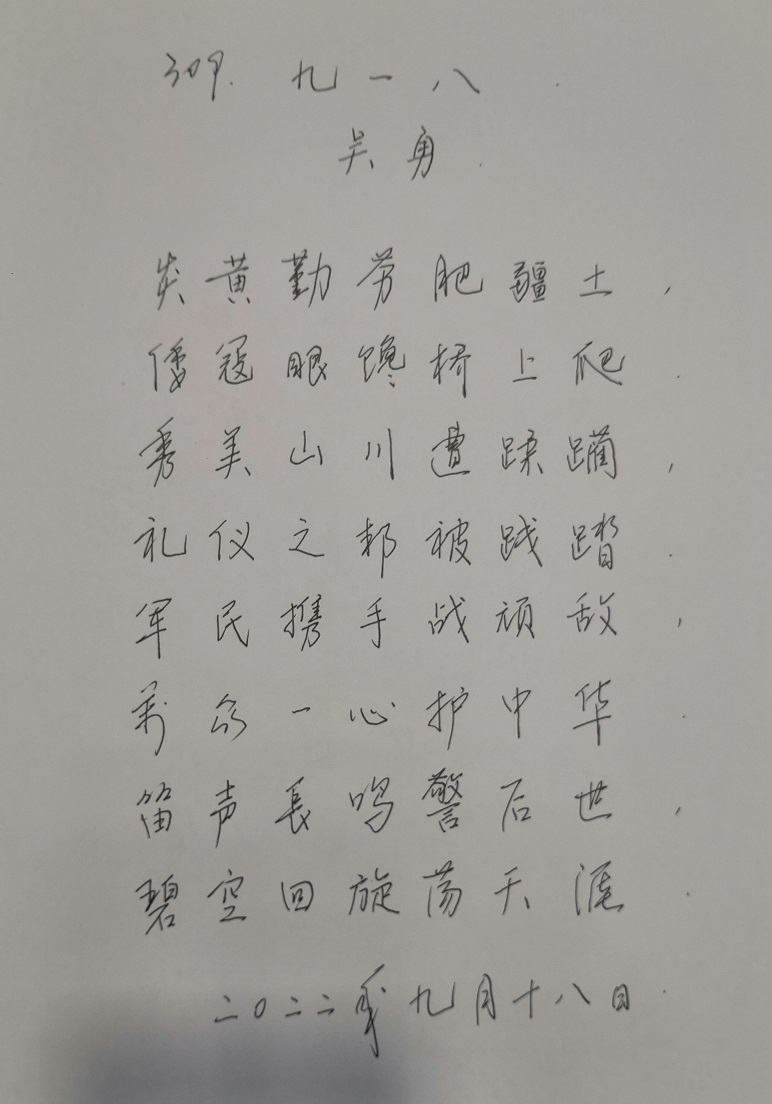 309. 九一八
吴勇
炎黄勤劳肥疆土，
倭寇眼馋桥上爬.
秀美山川遭蹂躏，
礼仪之邦被践踏.
军民携手战顽敌，
万众一心护中华.
笛声長鸣警后世，
碧空回旋荡天涯.
二〇二二年九月十八日.